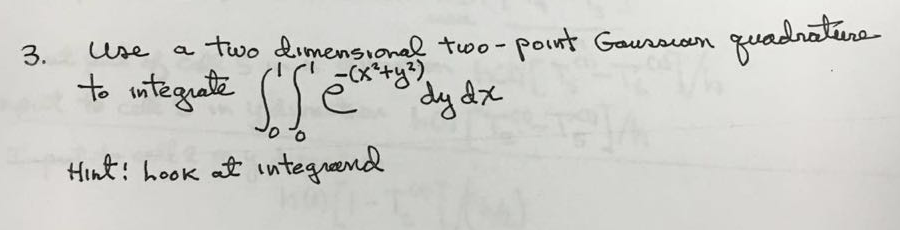 3. Use a two dimensional two-point Gaussian quadrature
to integrate ∫₀¹∫₀¹ e^{-(x²+y²)} dy dx
Hint: Look at integrand